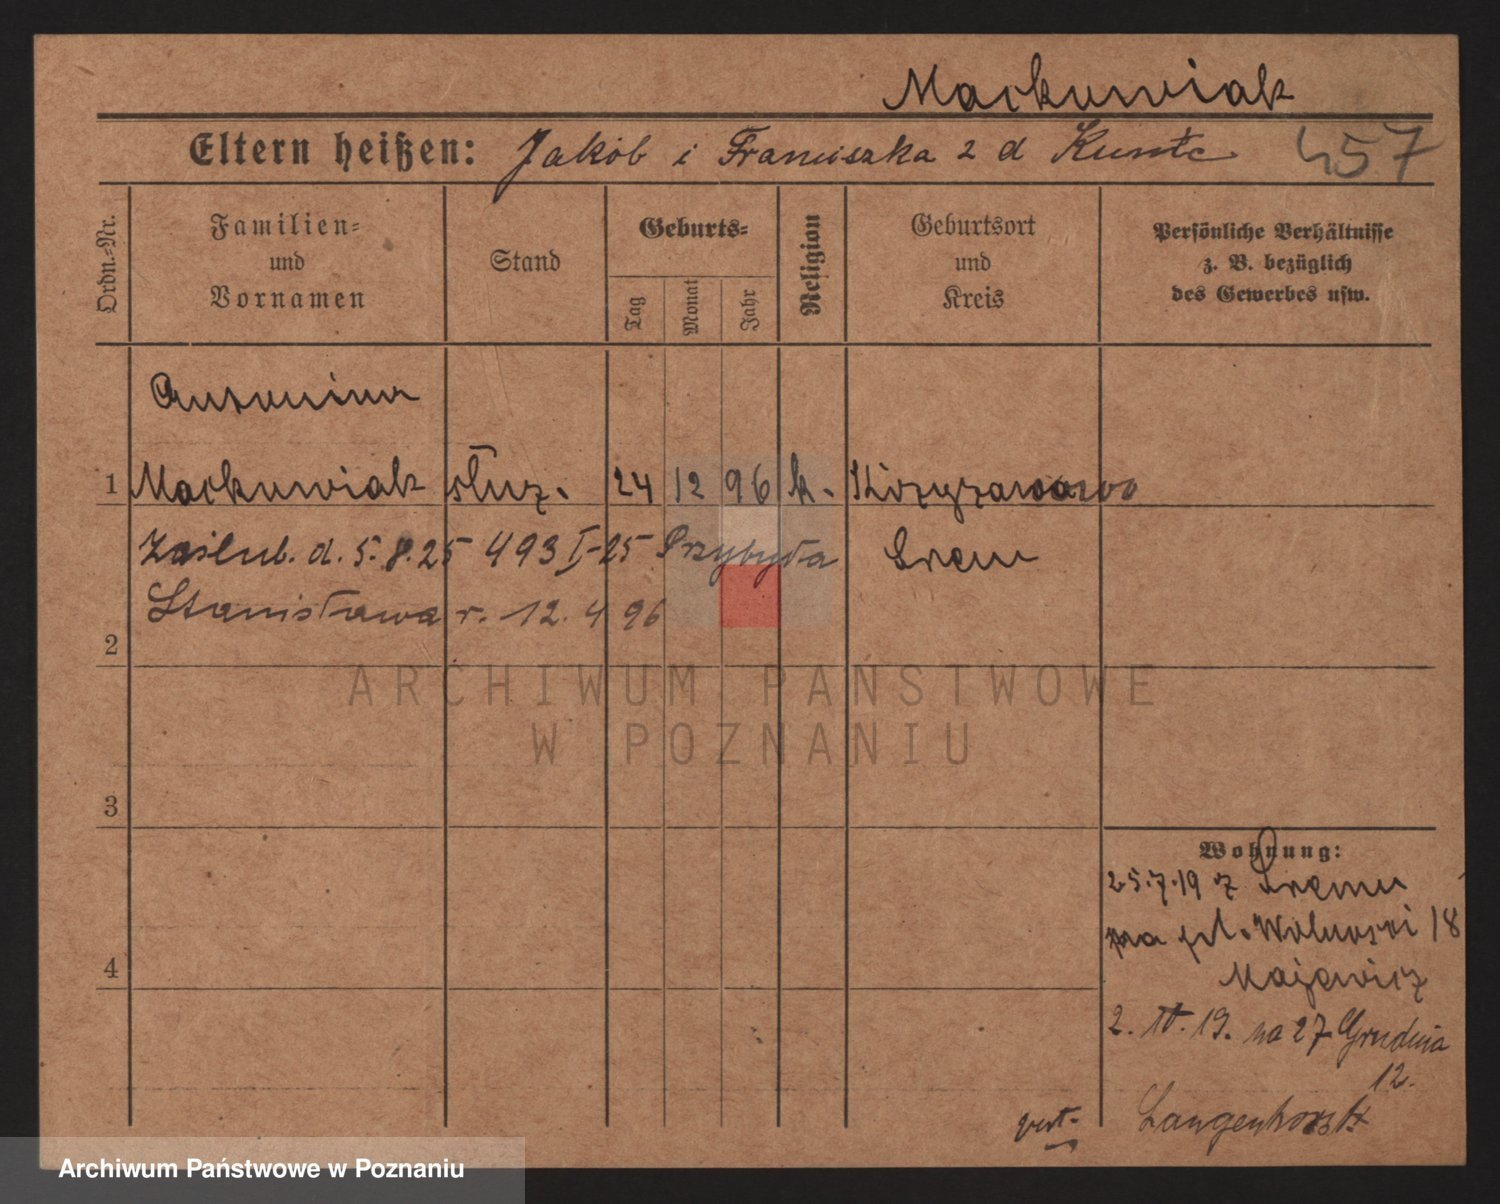 Mackowiak
Eltern heißen: Jakób i Franciszka z d Kunte 457
Ordn.-Nr.
Familien-
und
Vornamen
Stand
Geburts-
Tag
Monat
Jahr
Religion
Geburtsort
und
Kreis
Persönliche Verhältnisse
z. B. bezüglich
des Gewerbes usw.
Antonina
1 Mackowiak służ. 24 12 96 k. Krzyżanowo
Zaślub. d. 5.8.25 493 I-25 Przybyła Śrem
Stanisława r. 12.4 96
2
ARCHIWUM PAŃSTWOWE
W POZNANIU
3
4
Wohnung:
25.7.19 z Śremu
na pl. Wolności 18
Majewicz
2. 19. na 27 Grudnia
12.
Langenhorst
Archiwum Państwowe w Poznaniu